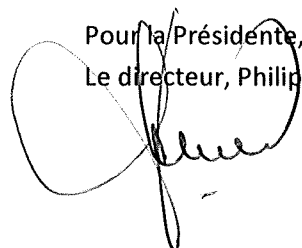 Pour la Présidente,
Le directeur, Philip